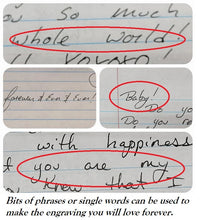 ou so much
whole world!
Forever & Ever & Ever!
Baby!
Do yo
Do you n
with happiness
f you are my
u knew that I
Bits of phrases or single words can be used to
make the engraving you will love forever.